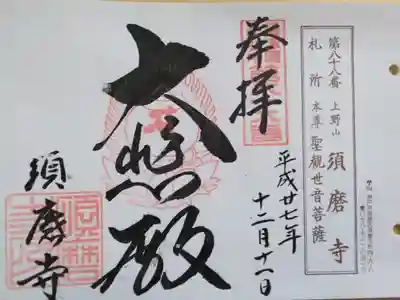 第八十八番 上野山 須磨寺
札所 本尊 聖観世音菩薩
奉拝
平成廿七年
十二月十一日
大悲殿
須磨寺